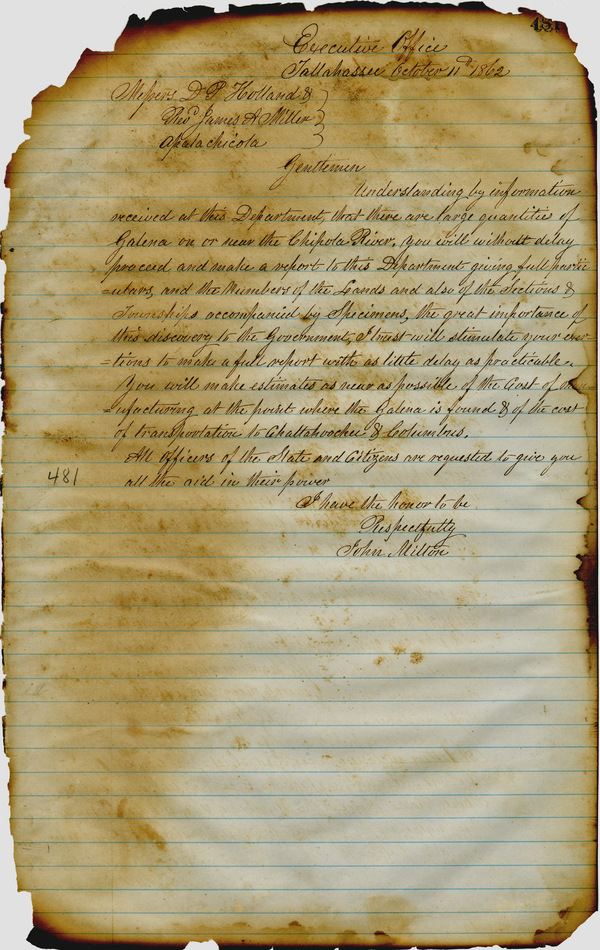 Executive Office
Tallahassee October 11th 1862
Messers D. P. Holland &
Revd James A Miller
Apalachicola
Gentlemen
Understanding by information
received at this Department, that there are large quantities of
Galena on or near the Chipola River, you will without delay
proceed and make a report to this Department giving full parti
=culars, and the Numbers of the Lands and also of the Sections &
Townships accompanied by Specimens, the great importance of
this discovery to the Government, I trust will stimulate your exer-
=tions to make a full report with as little delay as practicable.
You will make estimates as near as possible of the Cost of
=ufacturing at the point where the Galena is found & of the cost
of transportation to Chattahoochee & Columbus.
All Officers of the State and Citizens are requested to give you
all the aid in their power
481
I have the honor to be
Respectfully
John Milton